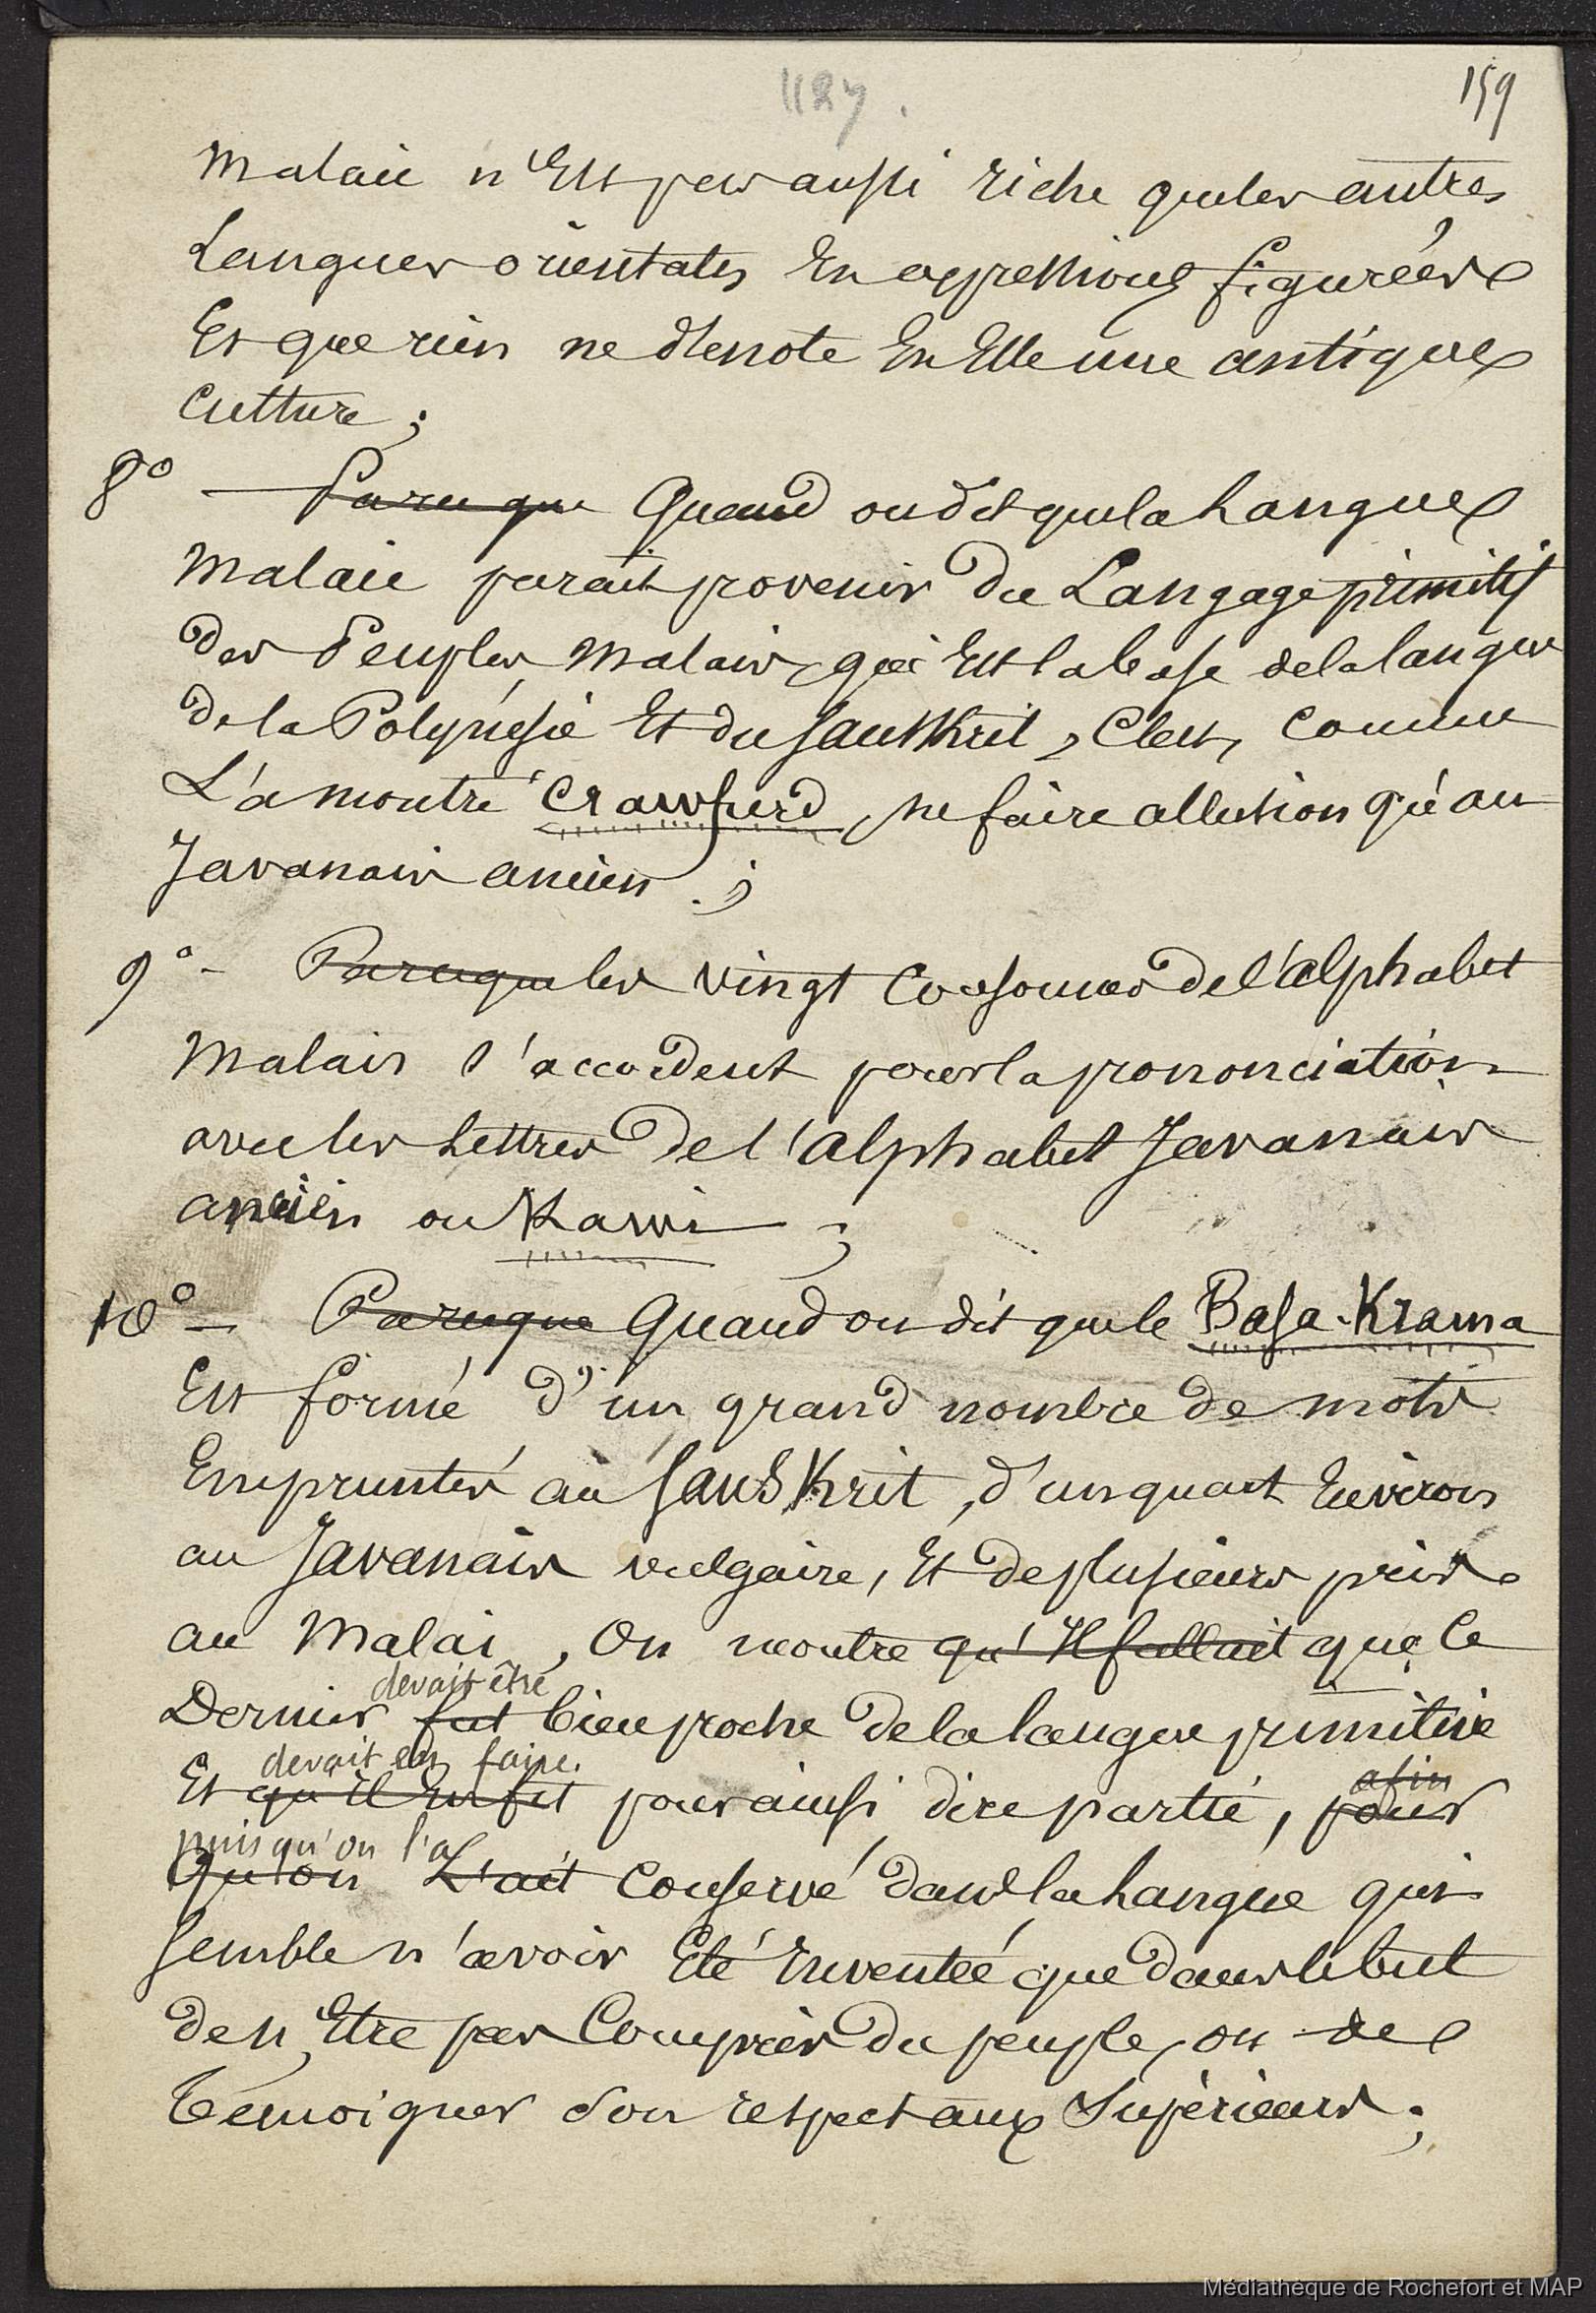 1127.
159
malaie n'est pas aussi riche que les autres
Langues orientales En expressions figurées
Et que rien ne dénote En Elle une antique
Culture ;
8° — Parce que Quand on dit que la Langue
Malaie paraît provenir du Langage primitif
des Peuples Malais, qui Est la base de la langue
de la Polynésie Et du Sanskrit, C'est, comme
L'a montré Crawfurd, ne faire allusion qu'au
Javanais ancien ;
9° - Parce que les vingt Consonnes de l'alphabet
Malais s'accordent pour la prononciation
avec les Lettres de l'alphabet Javanais
ancien ou Kawi ;
10° — Parce que Quand on dit que le Basa-Krama
Est formé d'un grand nombre de mots
Empruntés au Sanskrit, d'un quart Environ
au Javanais vulgaire, Et de plusieurs pris
au Malai, On montre qu'Il fallait que ce
devait être
Dernier fut bien proche de la langue primitive
devait en faire
Et qu'il En fit pour ainsi dire partie, pour
afin
puisqu'on l'a
Qu'on L'ait Conservé dans la Langue qui
semble n'avoir Eté Inventée que dans le but
de n'Etre pas Compris du peuple, ou de
témoigner son respect aux Supérieurs ;
Médiathèque de Rochefort et MAP